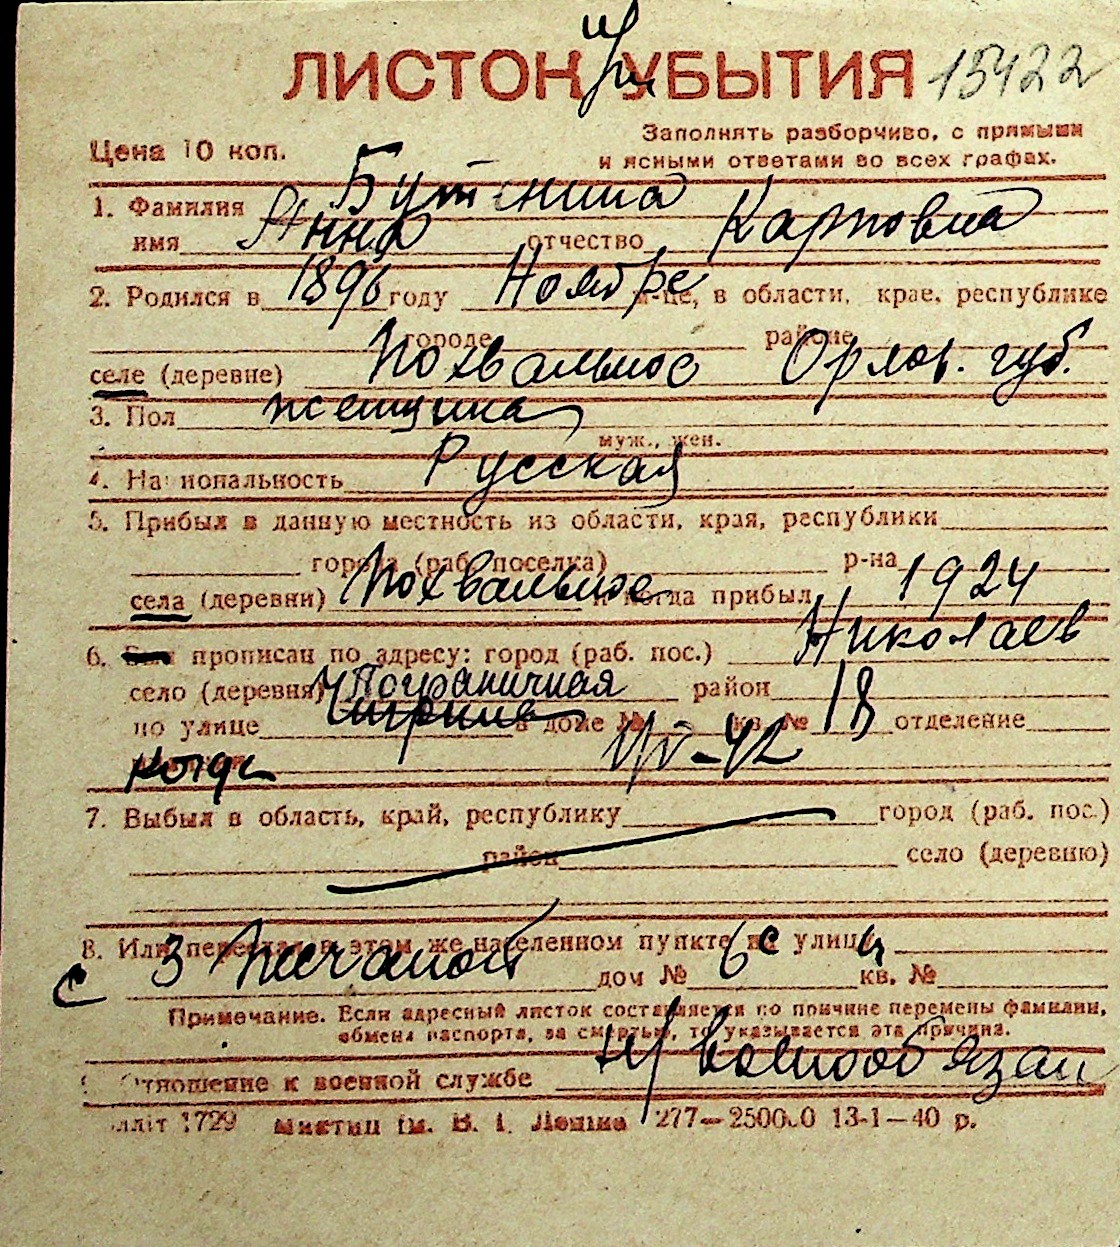 ЛИСТОК УБЫТИЯ 15422
Цена 10 коп.
Заполнять разборчиво, с прямыми
и ясными ответами во всех графах.
1. Фамилия
имя Анна отчество Карповна
2. Родился в 1896 году Ноябре м-це, в области, крае, республике
городе районе
селе (деревне) Похвальное Орлов. губ.
3. Пол женщина
муж., жен.
4. Национальность Русская
5. Прибыл в данную местность из области, края, республики
города (раб. поселка) р-на
села (деревни) Похвальное и когда прибыл 1924
6. прописан по адресу: город (раб. пос.) Николаев
село (деревня) Пограничная район
по улице в доме № кв. № 18 отделение
когда
7. Выбыл в область, край, республику город (раб. пос.)
район село (деревню)
8. Или переехал в этом же населенном пункте на улицу
с 3 Песчаной дом № 6 с кв. №
Примечание. Если адресный листок составляется по причине перемены фамилии,
обмена паспорта, за смертью, то указывается эта причина.
Отношение к военной службе н/военнообязан
1729 277— 13-1—40 р.